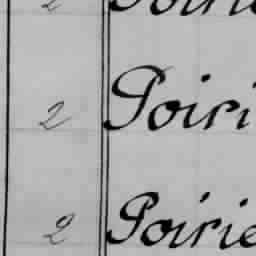 2 Poirie
2 Poiri
2 Poirie